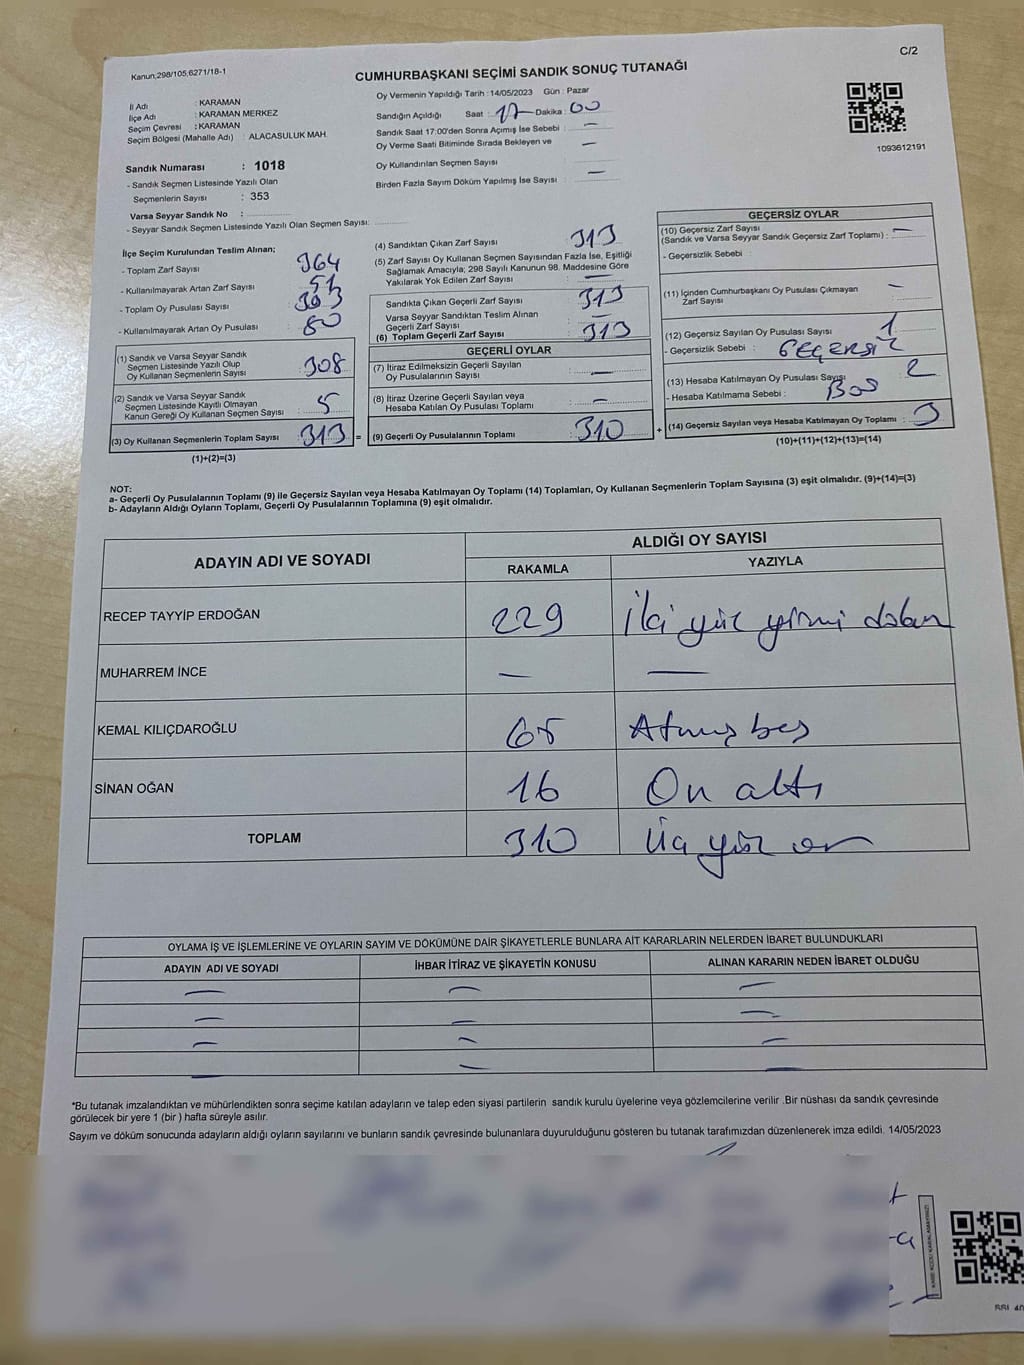 C/2
Kanun,298/105,6271/18-1
CUMHURBAŞKANI SEÇİMİ SANDIK SONUÇ TUTANAĞI
İl Adı : KARAMAN
İlçe Adı : KARAMAN MERKEZ
Seçim Çevresi : KARAMAN
Seçim Bölgesi (Mahalle Adı) : ALACASULUK MAH.
Sandık Numarası : 1018
- Sandık Seçmen Listesinde Yazılı Olan
Seçmenlerin Sayısı : 353
Varsa Seyyar Sandık No :
- Seyyar Sandık Seçmen Listesinde Yazılı Olan Seçmen Sayısı:
Oy Vermenin Yapıldığı Tarih : 14/05/2023 Gün : Pazar
Sandığın Açıldığı Saat : 17 Dakika : 00
Sandık Saat 17:00'den Sonra Açımış İse Sebebi : —
Oy Verme Saati Bitiminde Sırada Bekleyen ve —
Oy Kullandırılan Seçmen Sayısı
Birden Fazla Sayım Döküm Yapılmış İse Sayısı : —
1093612191
İlçe Seçim Kurulundan Teslim Alınan;
- Toplam Zarf Sayısı 364
- Kullanılmayarak Artan Zarf Sayısı : 51
- Toplam Oy Pusulası Sayısı
- Kullanılmayarak Artan Oy Pusulası : 80
(1) Sandık ve Varsa Seyyar Sandık
Seçmen Listesinde Yazılı Olup
Oy Kullanan Seçmenlerin Sayısı : 308
(2) Sandık ve Varsa Seyyar Sandık
Seçmen Listesinde Kayıtlı Olmayan
Kanun Gereği Oy Kullanan Seçmen Sayısı : 5
(3) Oy Kullanan Seçmenlerin Toplam Sayısı : 313 =
(1)+(2)=(3)
(4) Sandıktan Çıkan Zarf Sayısı 313
(5) Zarf Sayısı Oy Kullanan Seçmen Sayısından Fazla İse, Eşitliği
Sağlamak Amacıyla; 298 Sayılı Kanunun 98. Maddesine Göre
Yakılarak Yok Edilen Zarf Sayısı : —
Sandıkta Çıkan Geçerli Zarf Sayısı : 313
Varsa Seyyar Sandıktan Teslim Alınan
Geçerli Zarf Sayısı : —
(6) Toplam Geçerli Zarf Sayısı : 313
GEÇERLİ OYLAR
(7) İtiraz Edilmeksizin Geçerli Sayılan
Oy Pusulalarının Sayısı : —
(8) İtiraz Üzerine Geçerli Sayılan veya
Hesaba Katılan Oy Pusulası Toplamı : —
(9) Geçerli Oy Pusulalarının Toplamı : 310 +
GEÇERSİZ OYLAR
(10) Geçersiz Zarf Sayısı
(Sandık ve Varsa Seyyar Sandık Geçersiz Zarf Toplamı) : —
- Geçersizlik Sebebi :
(11) İçinden Cumhurbaşkanı Oy Pusulası Çıkmayan
Zarf Sayısı : —
(12) Geçersiz Sayılan Oy Pusulası Sayısı : 1
- Geçersizlik Sebebi : GEÇERSİZ
(13) Hesaba Katılmayan Oy Pusulası Sayısı : 2
- Hesaba Katılmama Sebebi : BOŞ
(14) Geçersiz Sayılan veya Hesaba Katılmayan Oy Toplamı : 3
(10)+(11)+(12)+(13)=(14)
NOT:
a- Geçerli Oy Pusulalarının Toplamı (9) ile Geçersiz Sayılan veya Hesaba Katılmayan Oy Toplamı (14) Toplamları, Oy Kullanan Seçmenlerin Toplam Sayısına (3) eşit olmalıdır. (9)+(14)=(3)
b- Adayların Aldığı Oyların Toplamı, Geçerli Oy Pusulalarının Toplamına (9) eşit olmalıdır.
ADAYIN ADI VE SOYADI ALDIĞI OY SAYISI
RAKAMLA YAZIYLA
RECEP TAYYİP ERDOĞAN 229 İki yüz yirmi dokuz
MUHARREM İNCE — —
KEMAL KILIÇDAROĞLU 65 Atmış beş
SİNAN OĞAN 16 On altı
TOPLAM 310 Üç yüz on
OYLAMA İŞ VE İŞLEMLERİNE VE OYLARIN SAYIM VE DÖKÜMÜNE DAİR ŞİKAYETLERLE BUNLARA AİT KARARLARIN NELERDEN İBARET BULUNDUKLARI
ADAYIN ADI VE SOYADI İHBAR İTİRAZ VE ŞİKAYETİN KONUSU ALINAN KARARIN NEDEN İBARET OLDUĞU
— — —
— — —
— — —
— — —
*Bu tutanak imzalandıktan ve mühürlendikten sonra seçime katılan adayların ve talep eden siyasi partilerin sandık kurulu üyelerine veya gözlemcilerine verilir .Bir nüshası da sandık çevresinde
görülecek bir yere 1 (bir ) hafta süreyle asılır.
Sayım ve döküm sonucunda adayların aldığı oyların sayılarını ve bunların sandık çevresinde bulunanlara duyurulduğunu gösteren bu tutanak tarafımızdan düzenlenerek imza edildi. 14/05/2023